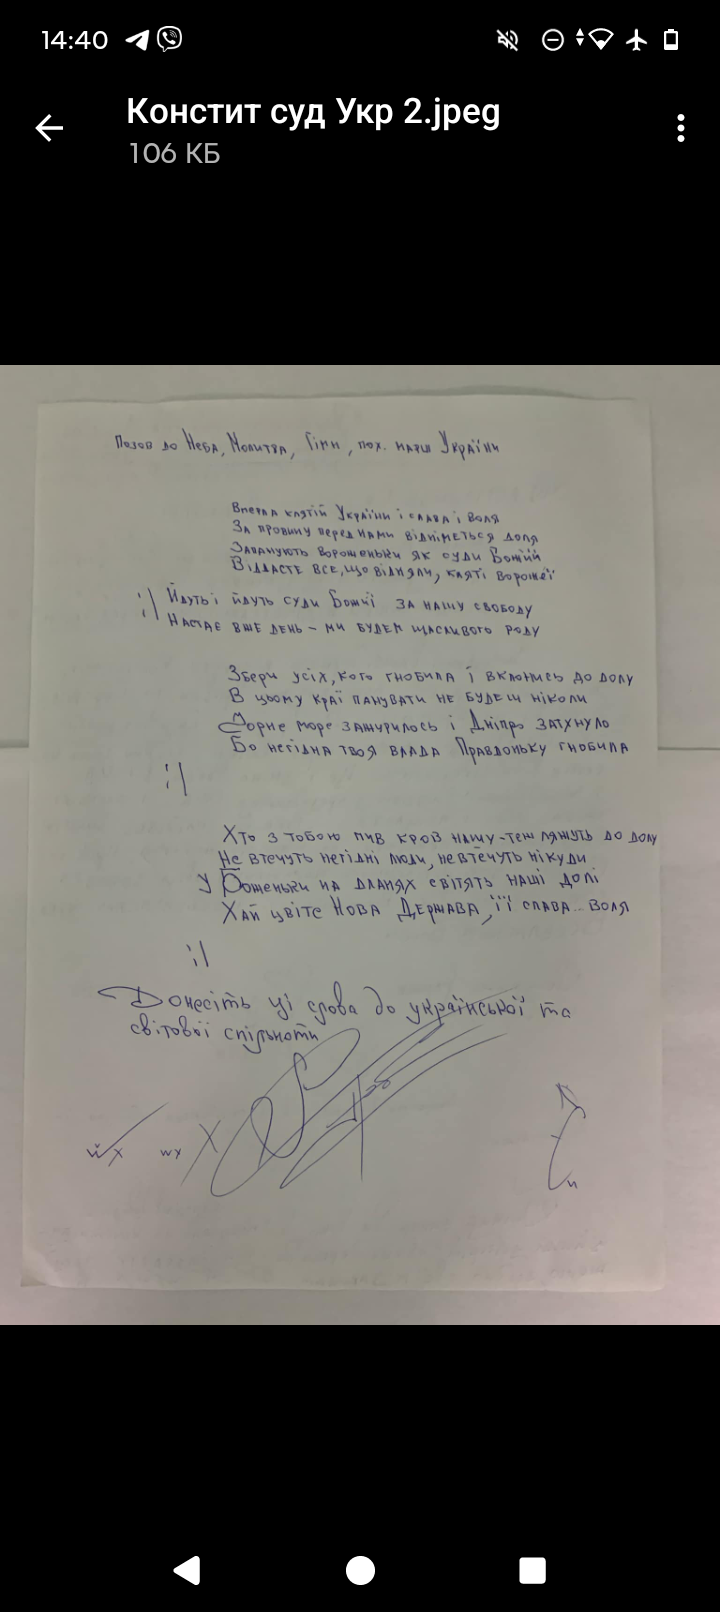 14:40
Констит суд Укр 2.jpeg
106 КБ
Позов до Неба, Молитва, Гімн, пох. марш України
Вмерла клятій України і слава і воля
За провину перед нами відніметься доля
Запанують вороженьки як суди Божій
Віддасте все, що відняли, кляті ворожеї
Йдуть і йдуть суди Божії за нашу свободу
Настає вже день – ми будем щасливого роду
Збери усіх, кого гнобила і вклонись до долу
В цьому краї панувати не будеш ніколи
Чорне море зажурилось і Дніпро затхнуло
Бо негідна твоя влада Правдоньку гнобила
:|
Хто з тобою пив кров нашу – теж ляжуть до долу
Не втечуть негідні люди, не втечуть нікуди
У Боженьки на дланях світять наші долі
Хай цвіте Нова Держава, її слава... воля
:|
Донесіть ці слова до української та
світової спільноти